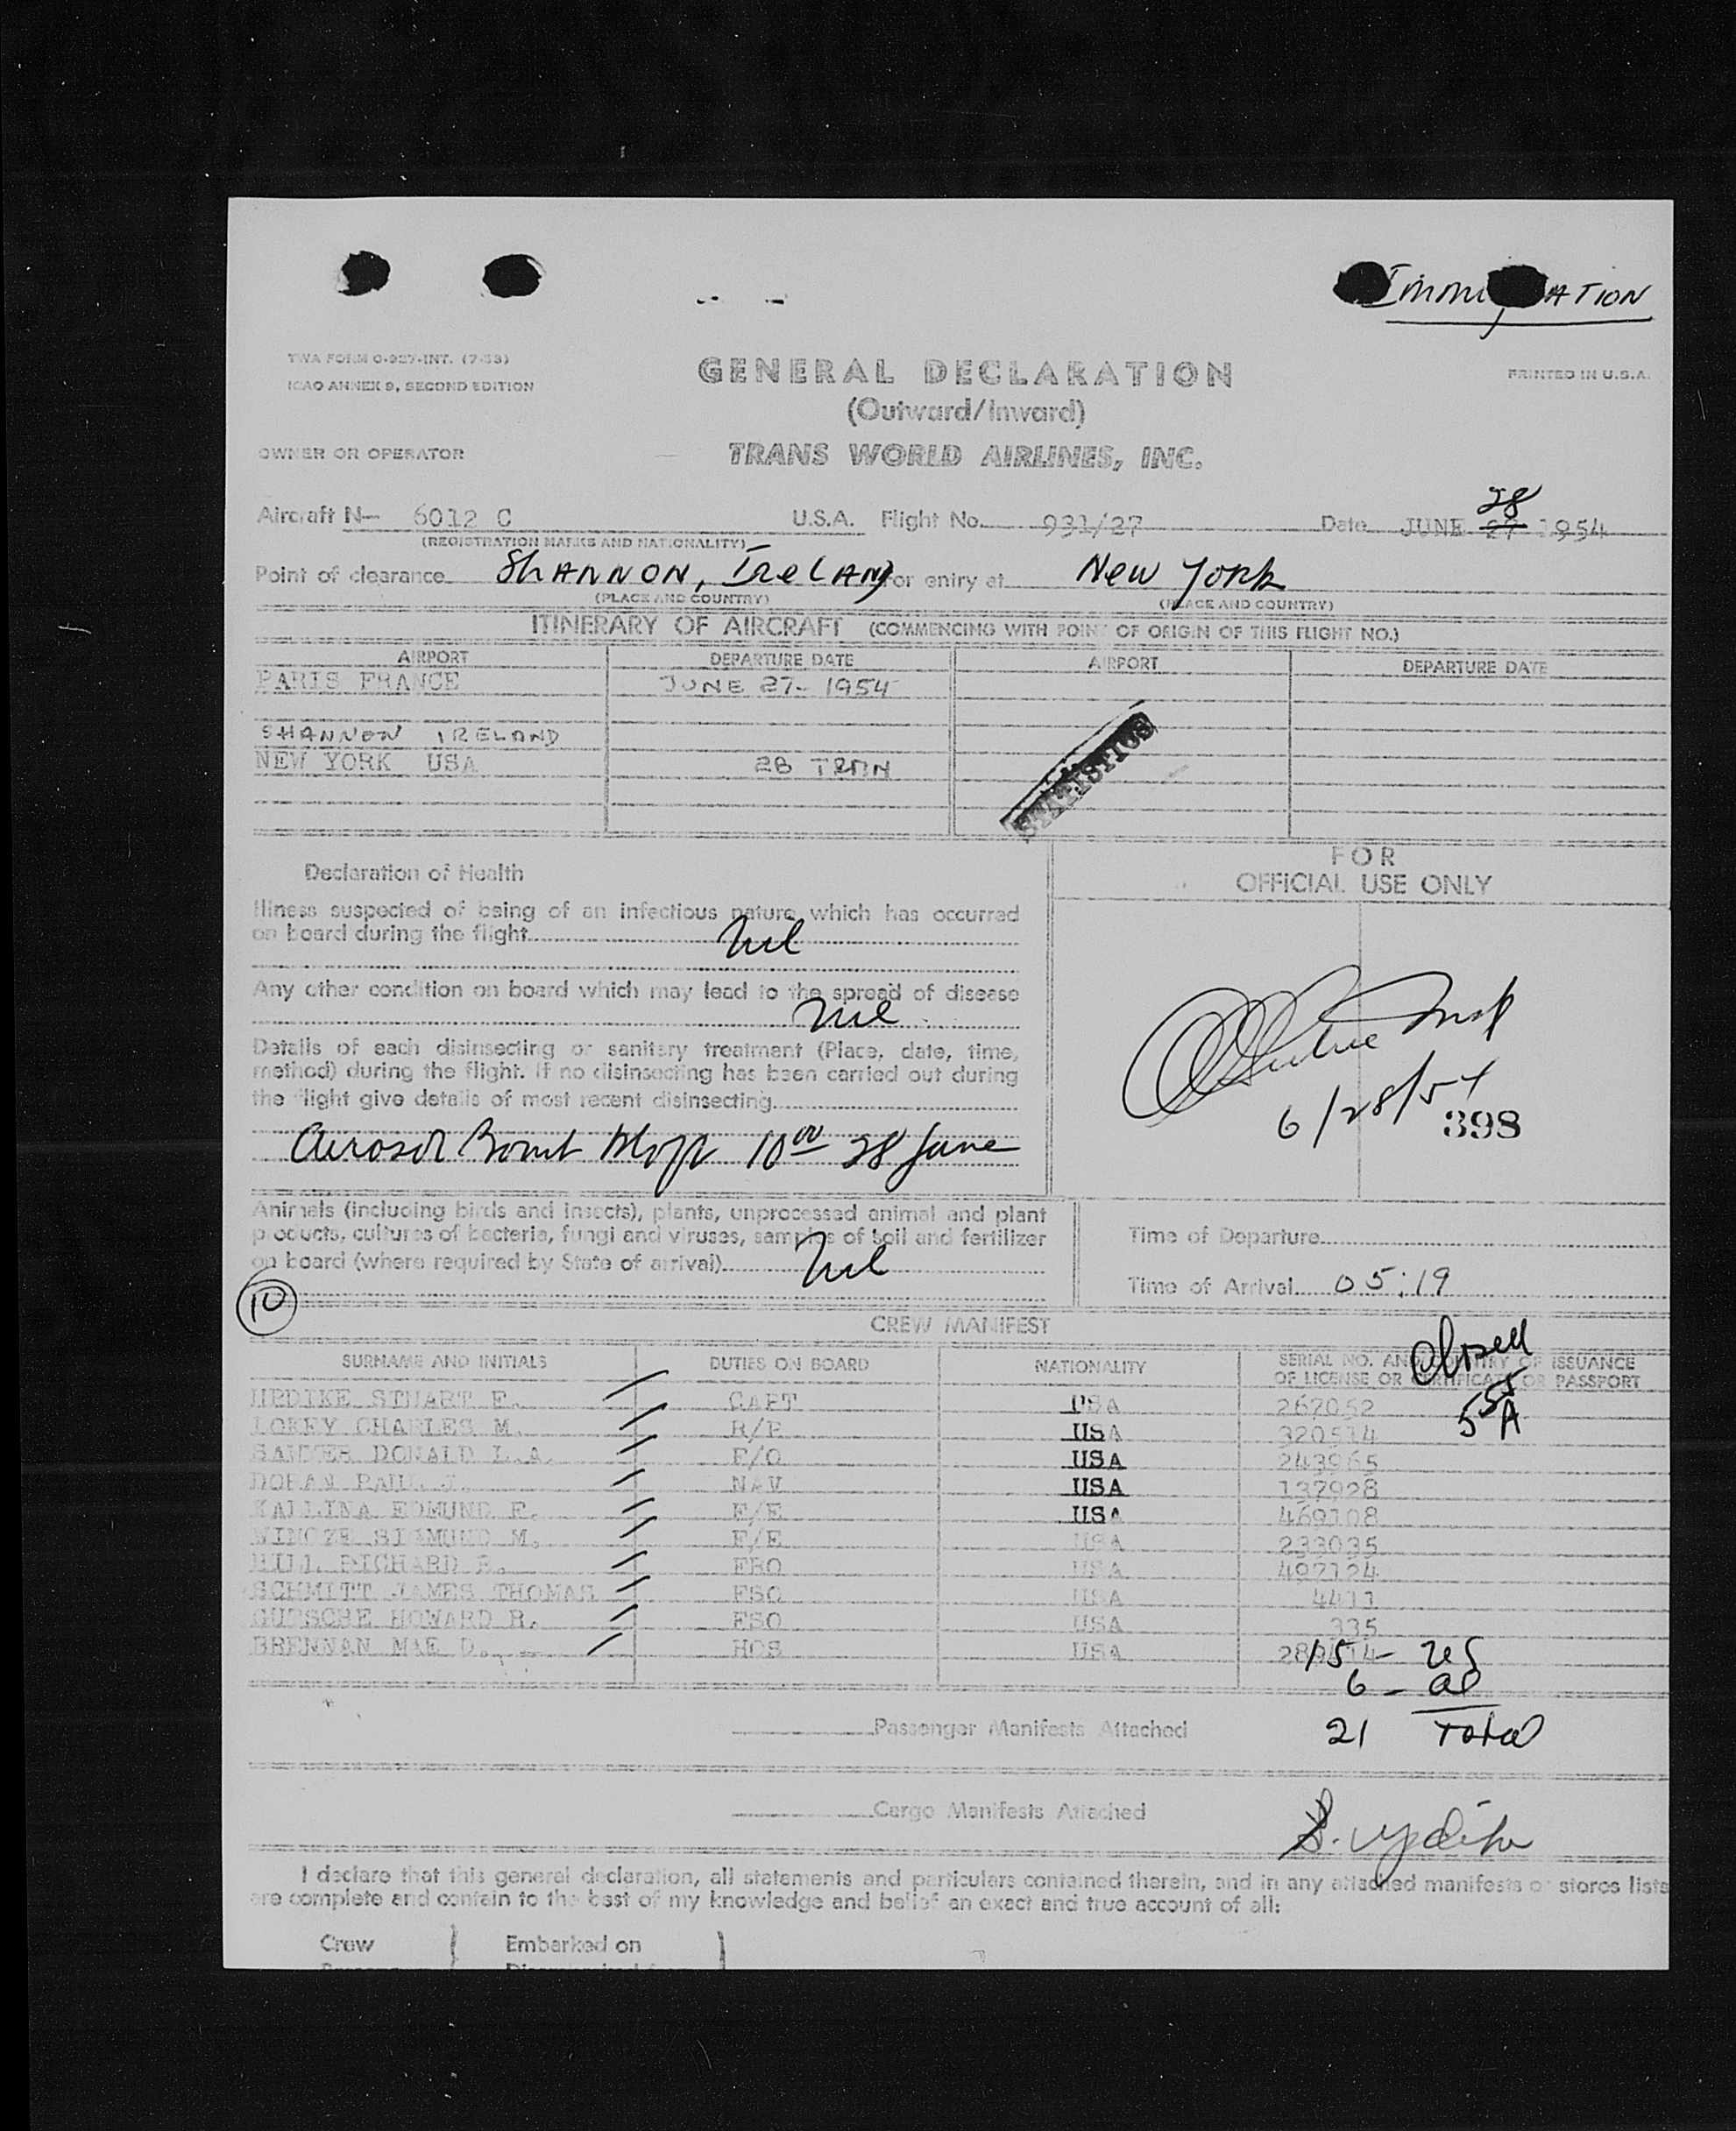 Immi ATION
TWA FORM O-927-INT. (7-53)
ICAO ANNEX 9, SECOND EDITION
GENERAL DECLARATION
PRINTED IN U.S.A.
(Outward/Inward)
OWNER OR OPERATOR
TRANS WORLD AIRLINES, INC.
28
Aircraft N— 6012 C U.S.A. Flight No. 931/27 Date JUNE 27 1954
(REGISTRATION MARKS AND NATIONALITY)
Point of clearance ShANNON, IReLAND For entry at New York
(PLACE AND COUNTRY) (PLACE AND COUNTRY)
ITINERARY OF AIRCRAFT (COMMENCING WITH POINT OF ORIGIN OF THIS FLIGHT NO.)
AIRPORT DEPARTURE DATE AIRPORT DEPARTURE DATE
PARIS FRANCE JUNE 27- 1954
SHANNON IRELAND
NEW YORK USA 28 TRMN
STATISTICS
FOR
OFFICIAL USE ONLY
Declaration of Health
Illness suspected of being of an infectious nature which has occurred
on board during the flight Nil
Any other condition on board which may lead to the spread of disease
Nil
Details of each disinsecting or sanitary treatment (Place, date, time,
method) during the flight. If no disinsecting has been carried out during
the flight give details of most recent disinsecting
6/28/54
398
Aerosol Bomb 10 00 28 June
Animals (including birds and insects), plants, unprocessed animal and plant
products, cultures of bacteria, fungi and viruses, samples of soil and fertilizer
on board (where required by State of arrival) Nil
Time of Departure
Time of Arrival 05:19
10
CREW MANIFEST
Closed
SURNAME AND INITIALS DUTIES ON BOARD NATIONALITY SERIAL NO. AND COUNTRY OF ISSUANCE
OF LICENSE OR CERTIFICATE OR PASSPORT
UPDIKE STUART F. CAPT USA 267052
LOKEY CHARLES M. R/P USA 320514
SAWYER DONALD L.A. F/O USA 243965
DORAN PAUL J. NAV USA 137928
KALLINA EDMUND F. F/E USA 469108
SIGMUND M. F/E USA 233035
HILL RICHARD FRO USA 497124
SCHMITT JAMES THOMAS FSO USA 4411
GUTSCHE HOWARD R. FSO USA 335
BRENNAN MAE D. HOS USA
15 - US
6 - al
21 Total
Passenger Manifests Attached
Cargo Manifests Attached
S. Updike
I declare that this general declaration, all statements and particulars contained therein, and in any attached manifests or stores lists
are complete and contain to the best of my knowledge and belief an exact and true account of all:
Crew Embarked on